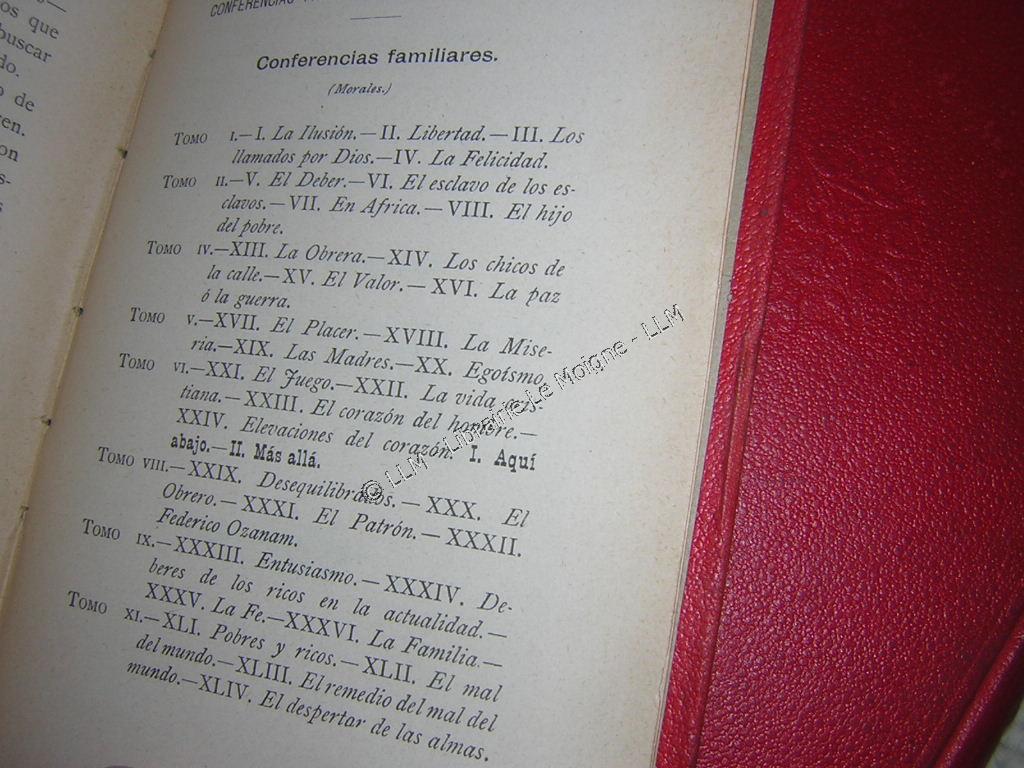 os que
buscar
do.
o de
en.
on
s-
s
CONFERENCIAS
Conferencias familiares.
(Morales.)
Tomo I.—I. La Ilusión.—II. Libertad.—III. Los
llamados por Dios.—IV. La Felicidad.
Tomo II.—V. El Deber.—VI. El esclavo de los es-
clavos.—VII. En Africa.—VIII. El hijo
del pobre.
Tomo IV.—XIII. La Obrera.—XIV. Los chicos de
la calle.—XV. El Valor.—XVI. La paz
ó la guerra.
Tomo V.—XVII. El Placer.—XVIII. La Mise-
ria.—XIX. Las Madres.—XX. Egoísmo.
Tomo VI.—XXI. El Juego.—XXII. La vida
tiana.—XXIII. El corazón del hombre.—
XXIV. Elevaciones del corazón. I. Aquí
abajo.—II. Más allá.
Tomo VIII.—XXIX. Desequilibrados.—XXX. El
Obrero.—XXXI. El Patrón.—XXXII.
Federico Ozanam.
Tomo IX.—XXXIII. Entusiasmo.—XXXIV. De-
beres de los ricos en la actualidad.—
XXXV. La Fe.—XXXVI. La Familia.—
Tomo XI.—XLI. Pobres y ricos.—XLII. El mal
del mundo.—XLIII. El remedio del mal del
mundo.—XLIV. El despertar de las almas.
© LLM - Librairie Le Moigne - LLM